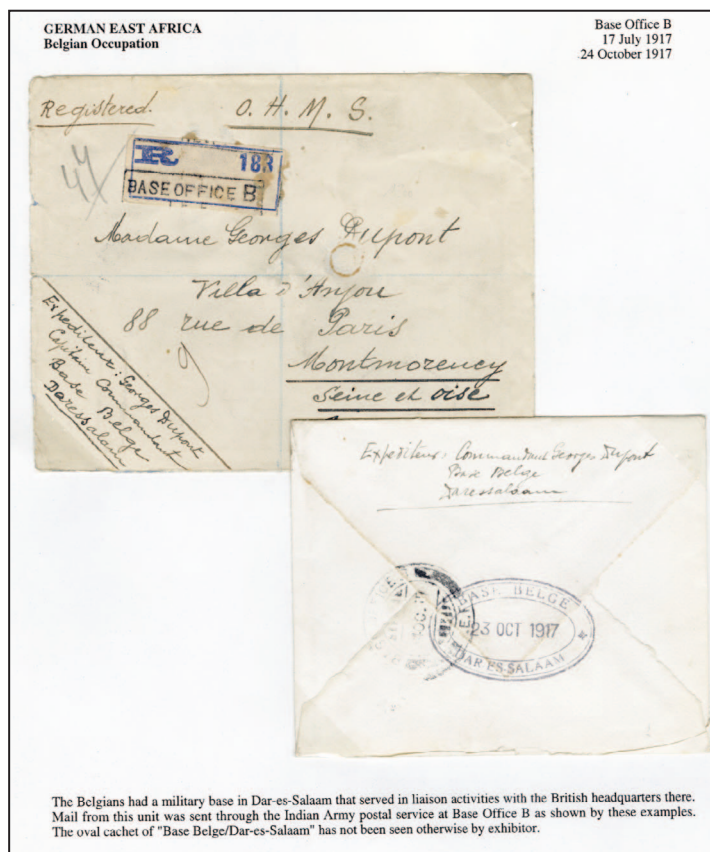 GERMAN EAST AFRICA
Belgian Occupation
Base Office B
17 July 1917
24 October 1917
Registered. O. H. M. S.
44
R 183
BASE OFFICE B
Madame Georges Dupont
Villa d'Anjou
88 rue de Paris
Montmorency
Seine et oise
Expediteur: Georges Dupont
Capitaine Commandant
Base Belge
Daressalam
Expediteur: Commandant Georges Dupont
Base Belge
Daressalaam
BASE BELGE
23 OCT 1917
DAR ES-SALAAM
The Belgians had a military base in Dar-es-Salaam that served in liaison activities with the British headquarters there.
Mail from this unit was sent through the Indian Army postal service at Base Office B as shown by these examples.
The oval cachet of "Base Belge/Dar-es-Salaam" has not been seen otherwise by exhibitor.